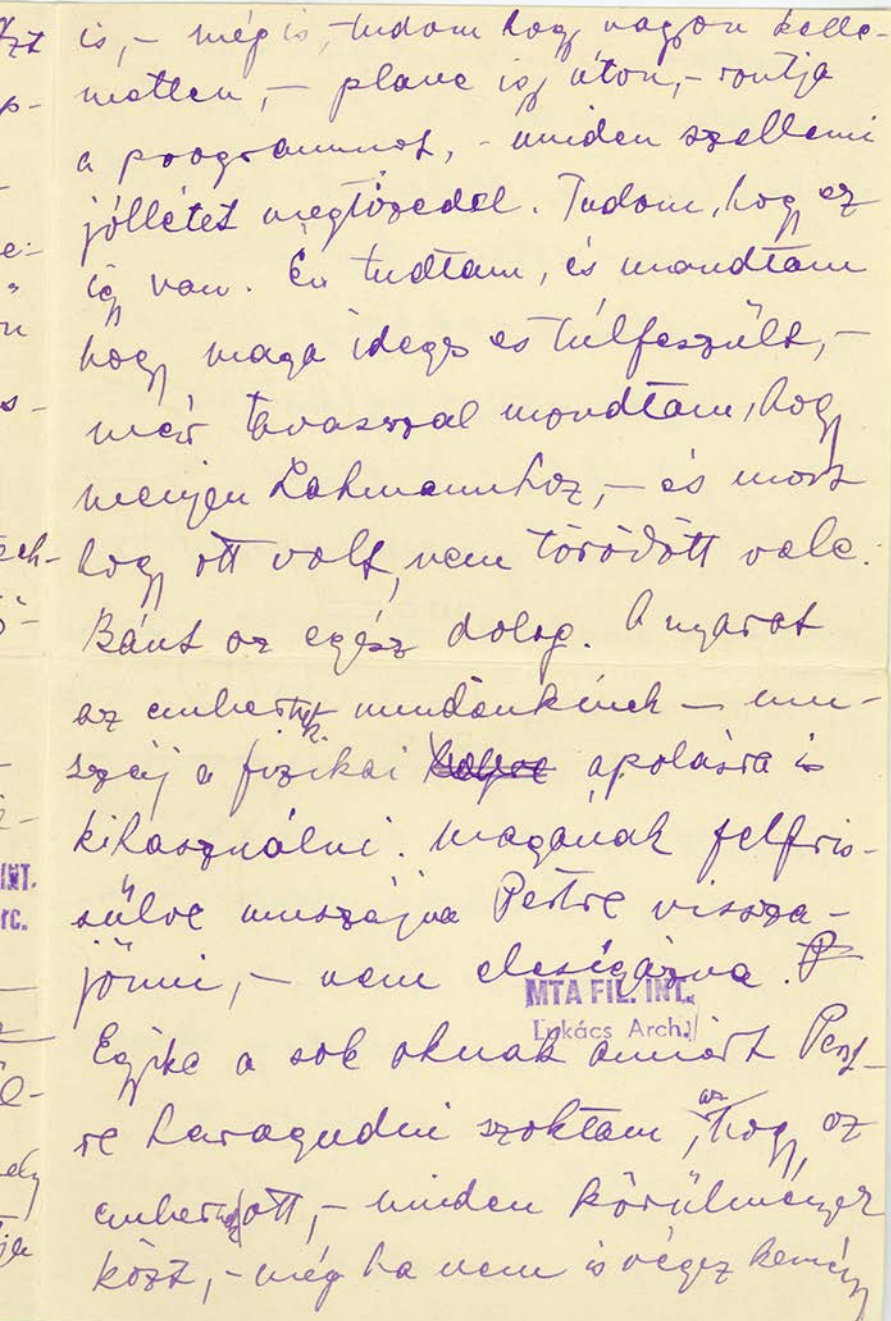 is, – még is, tudom hogy nagyon kelle-
metlen, – plane igy úton, – rontja
a programmot, – minden szellemi
jóllétet megtizedel. Tudom, hogy ez
igy van. Én tudtam, és mondtam
hogy maga ideges es túlfeszült, –
már tavasszal mondtam, hogy
menjen Lahmannhoz, – és most
hogy ott volt, nem törödött vele.
Bánt az egész dolog. A nyarat
az embernek mindenkinek – mu-
száj a fizikai ápolásra is
kihasználni. Magának felfris-
sülve muszájna Pestre vissza-
jönni, – nem elcsigázva.
MTA FIL. INT.
Lukács Arch.
Egyike a sok oknak amiért Pest-
re haragudni szoktam, az hogy az
ember ott, – minden körülmények
közt, – még ha nem is végez kemény
INT.
rc.